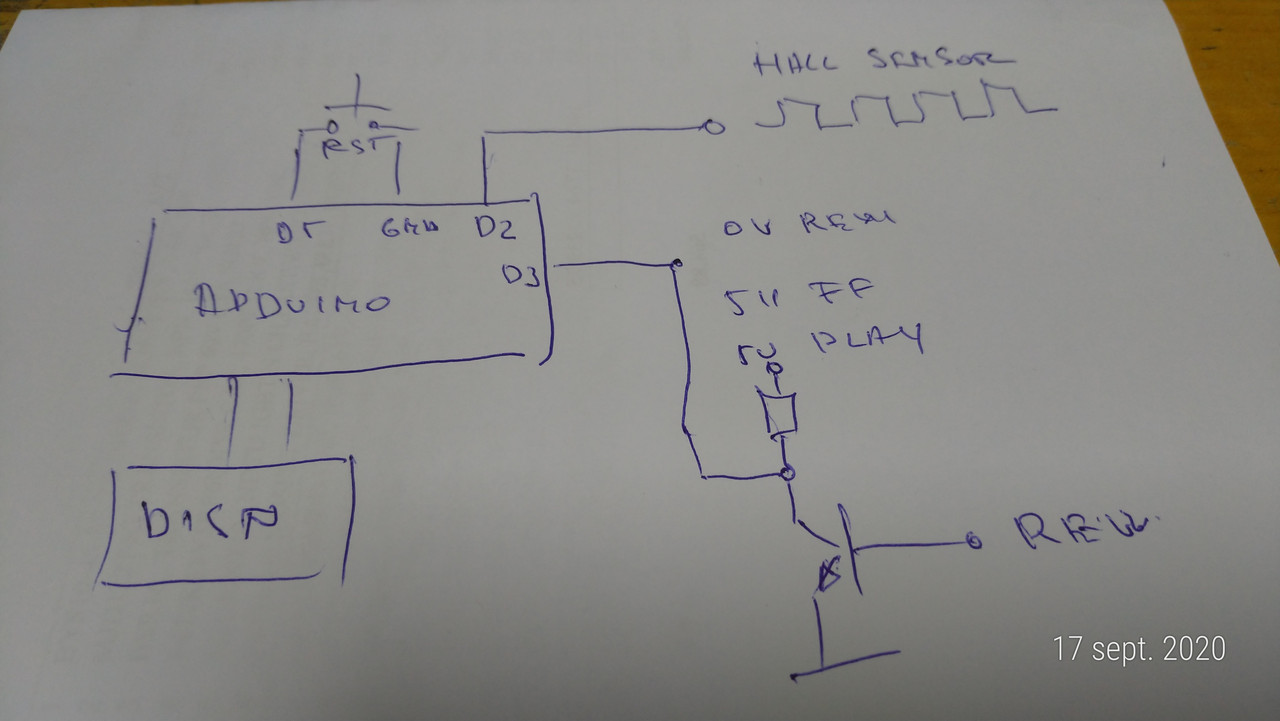 HALL SENSOR
RST
D5 GND D2
D3
ARDUINO
0V REW
5V FF
5V PLAY
DISP
REW.
17 sept. 2020